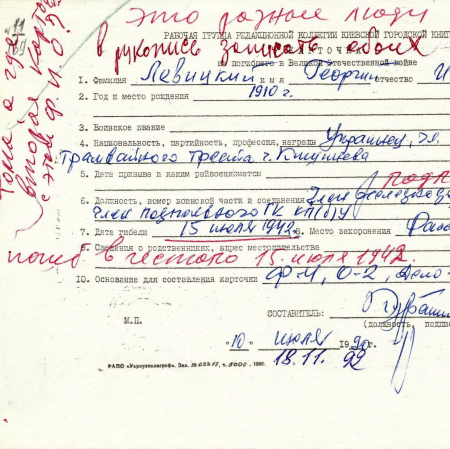 это разные люди
в рукопись записать обоих
РАБОЧАЯ ГРУППА РЕДАКЦИОННОЙ КОЛЛЕГИИ КИЕВСКОЙ ГОРОДСКОЙ КНИГ
погибшего в Великой Отечественной войне
1. Фамилия Левицкий имя Георгий отчество И
2. Год и место рождения 1910 г.
3. Воинское звание
4. Национальность, партийность, профессия, награды Украинец, эл.
трамвайного треста г. Кишинева
5. Дата призыва и каким райвоенкоматом
6. Должность, номер воинской части и соединения Член
член подпольного ГК КП(б)У
7. Дата гибели 15 июля 1942. 8. Место захоронения
9. Сведения о родственниках, адрес местожительства
погиб в гестапо 15 июля 1942
10. Основание для составления карточки Ф-4, О-2, Дело-
СОСТАВИТЕЛЬ:
(должность, подпи
М.П.
"10" июля 199 г.
18.11. 92
РАПО «Укрвузполиграф». Зак. ч. 5000. 1990.
Тома, а где
вторая карто
с этим Ф.И.О.?